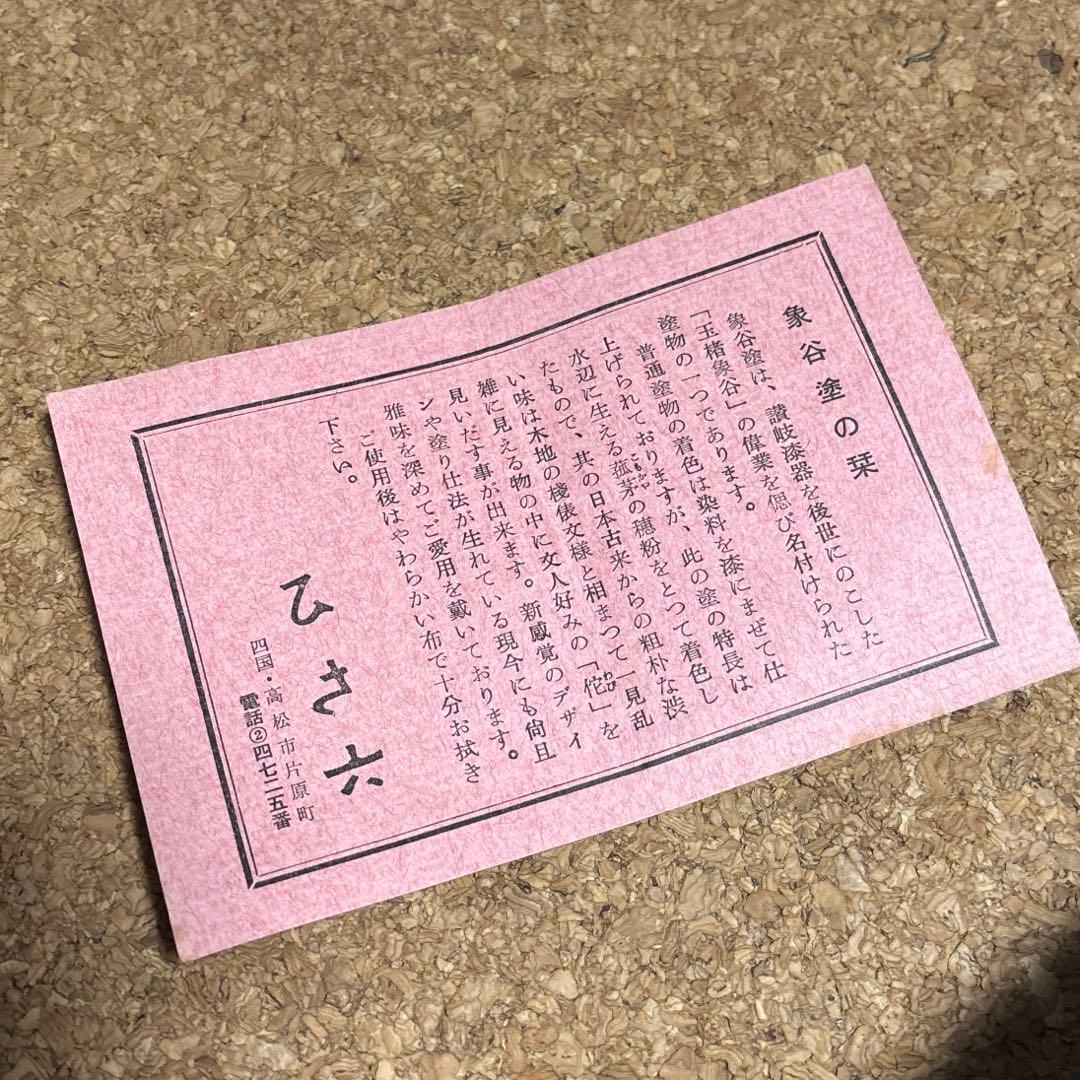 象谷塗の栞
象谷塗は、讃岐漆器を後世にのこした
「玉楮象谷」の偉業を偲び名付けられた
塗物の一つであります。
普通塗物の着色は染料を漆にまぜて仕
上げられておりますが、此の塗の特長は
水辺に生える菰茅の穂粉をとつて着色し
こもかや
たもので、其の日本古来からの粗朴な渋
い味は木地の棧俵文様と相まつて一見乱
雑に見える物の中に文人好みの「侘」を
わび
見いだす事が出来ます。新感覚のデザイ
ンや塗り仕法が生れている現今にも尙且
雅味を深めてご愛用を戴いております。
ご使用後はやわらかい布で十分お拭き
下さい。
ひさ六
四国・高松市片原町
電話②四七二五番